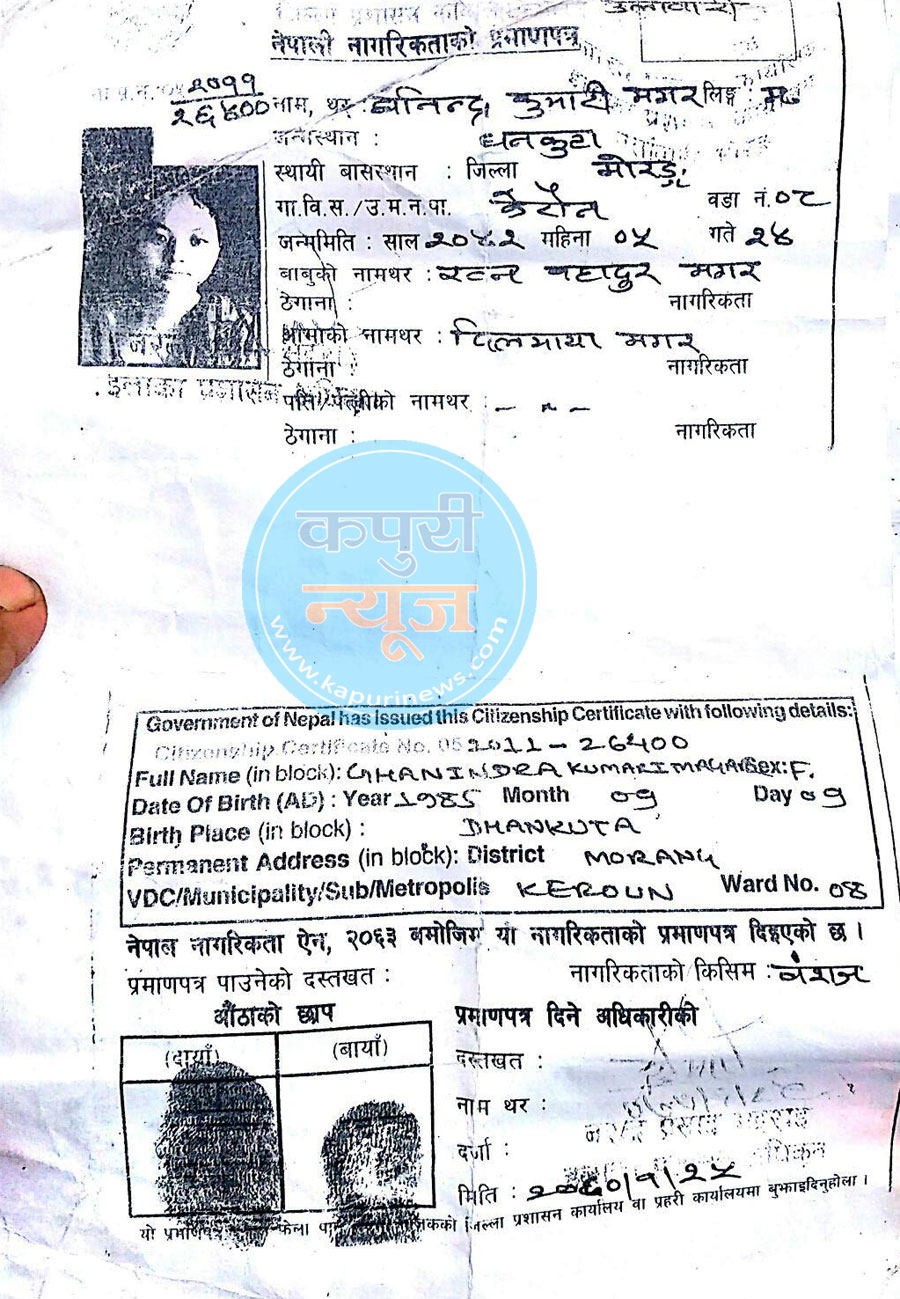 नेपाली नागरिकताको प्रमाणपत्र
२०११
२६४०० नाम, थर : कुमारी मगर लिङ्ग म०
जन्मस्थान : धनकुटा
स्थायी बासस्थान : जिल्ला मोरङ्ग
गा.वि.स./उ.म.न.पा. केरौन वडा नं.०८
जन्ममिति : साल २०४२ महिना ०५ गते २४
बाबुको नामथर : रत्न बहादुर मगर
ठेगाना : नागरिकता
आमाको नामथर : दिलमाया मगर
ठेगाना : नागरिकता
इलाका प्रशासन
पति/पत्नीको नामथर :
ठेगाना : नागरिकता
कपुरी
न्यूज
www.kapurinews.com
Government of Nepal has issued this Citizenship Certificate with following details:
Citizenship Certificate No. 052011-26400
Full Name (in block): GHANINDRA KUMARI MAGAR Sex: F.
Date Of Birth (AD) : Year 1985 Month 09 Day 09
Birth Place (in block) : DHANKUTA
Permanent Address (in block): District MORANG
VDC/Municipality/Sub/Metropolis KEROUN Ward No. 08
नेपाल नागरिकता ऐन, २०६३ बमोजिम यो नागरिकताको प्रमाणपत्र दिइएको छ ।
प्रमाणपत्र पाउनेको दस्तखत : नागरिकताको किसिम : वंशज
औंठाको छाप प्रमाणपत्र दिने अधिकारीको
(दायाँ) (बायाँ)
दस्तखत :
नाम थर :
दर्जा :
मिति :
यो प्रमाणपत्र फेला जिल्ला प्रशासन कार्यालय वा प्रहरी कार्यालयमा बुझाइदिनुहोला ।